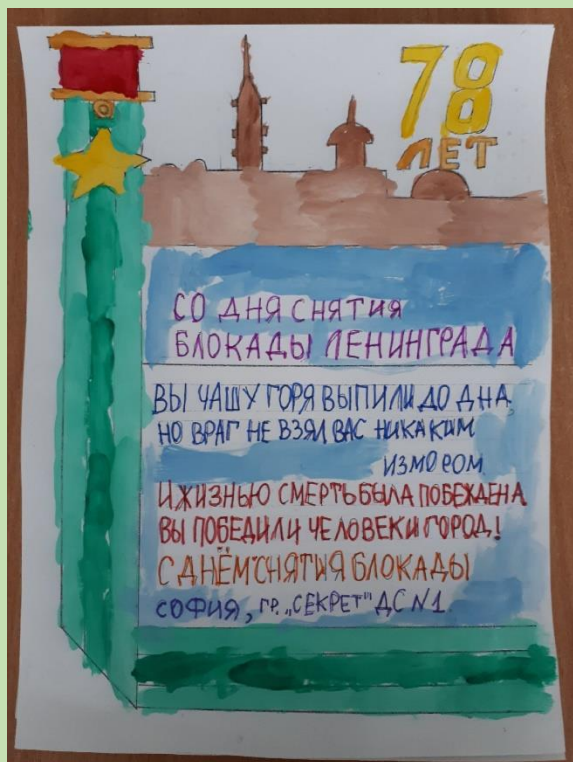 78
ЛЕТ
СО ДНЯ СНЯТИЯ
БЛОКАДЫ ЛЕНИНГРАДА
ВЫ ЧАШУ ГОРЯ ВЫПИЛИ ДО ДНА,
НО ВРАГ НЕ ВЗЯЛ ВАС НИКАКИМ
ИЗМОРОМ
И ЖИЗНЬЮ СМЕРТЬ БЫЛА ПОБЕЖДЕНА
ВЫ ПОБЕДИЛИ ЧЕЛОВЕК И ГОРОД!
С ДНЁМ СНЯТИЯ БЛОКАДЫ
СОФИЯ, ГР. „СЕКРЕТ" ДС N1.